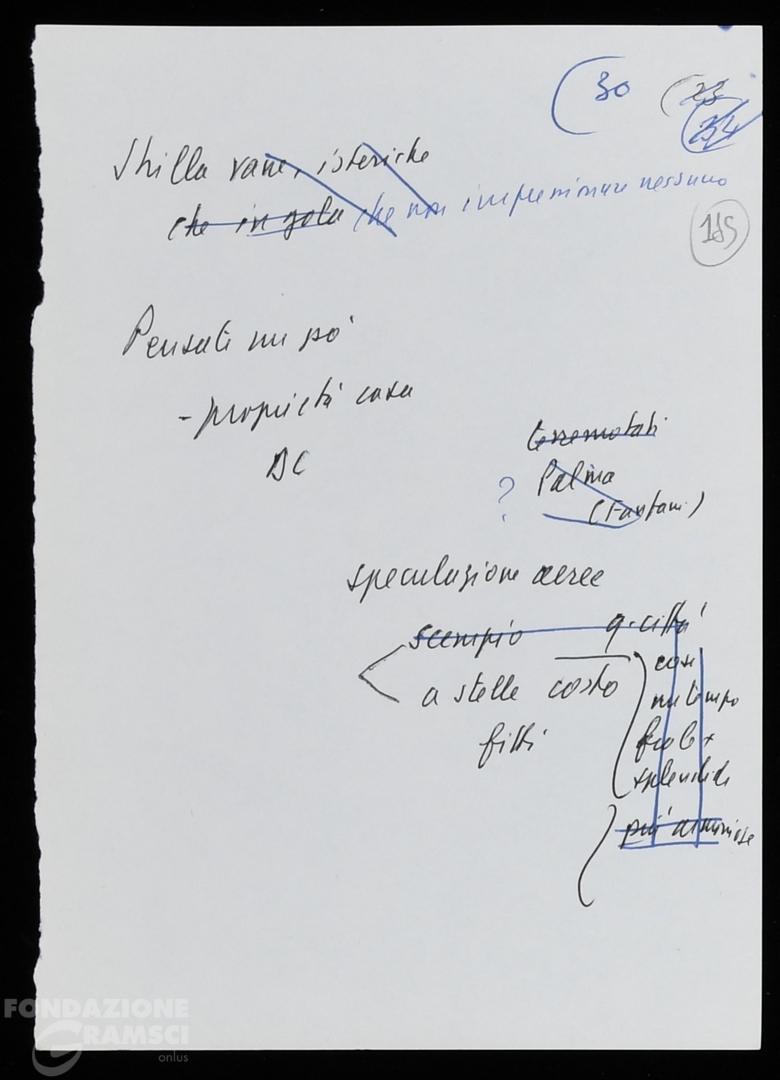 30 23
24
Strilla vane, isteriche
che in gola che non impressionare nessuno
185
Pensate un po'
- proprietà casa
DC
terremotati
? Palma
(Fanfani)
speculazione aeree
scempio q. città
a stelle costo
fitti
così
un tempo
splendide
più armoniose
FONDAZIONE
GRAMSCI
onlus